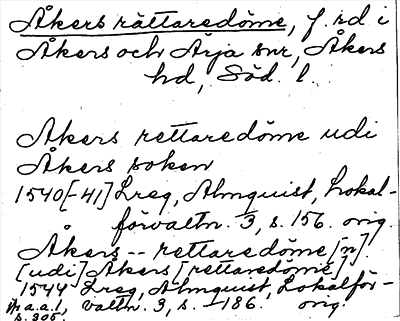 Åkers rättaredöme, f. rd i
Åkers och Ärja snr, Åkers
hd, Söd. l.
Åkers rettaredöme udi
Åkers soken
1540[-41] Lreg, Almquist, Lokal-
förvaltn. 3, s. 156. orig.
Åkers -- rettaredöme[n]
[udi] Åkers [rettaredöme],
1544 Lreg, Almquist, Lokalför-
valtn. 3, s. -186. orig.
a.a. 1,
s. 305.